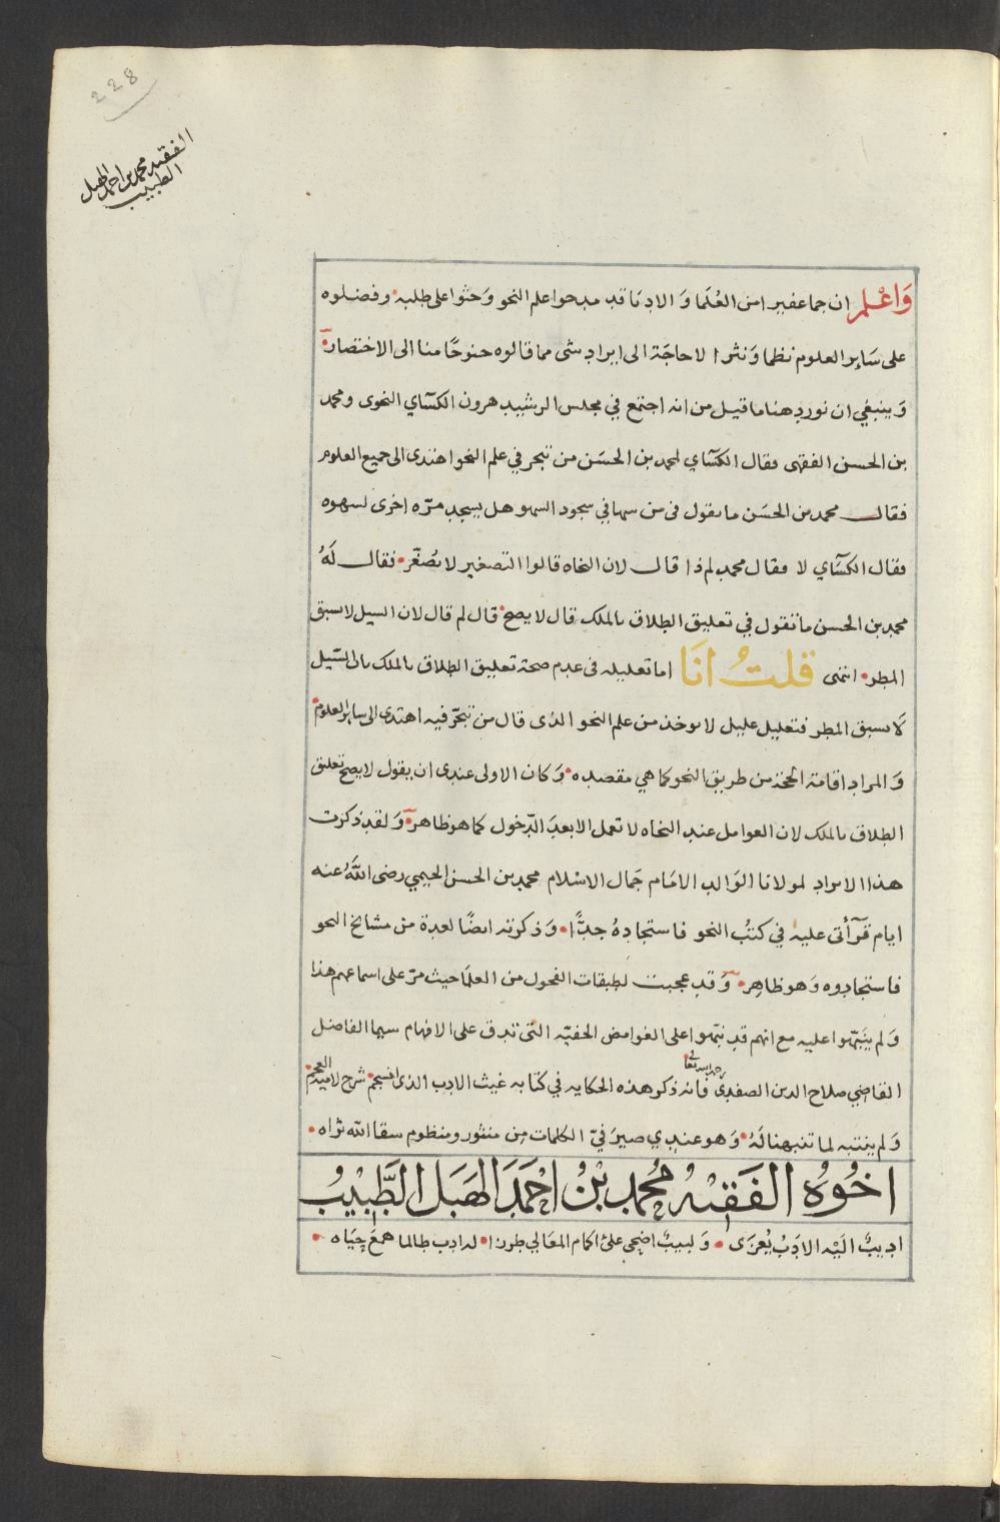 228
الفقيه محمد بن احمد الهبل
الطبيب
وَاعْلم ان جما غفيرا من العُلَما وَالادبَا قد مدحوا علم النحو وَحثوا على طلبه وفضلوه
على سَاير العلوم نظما وَنثرا لا حاجَة الى ايراد شى مما قالوه جنوحًا منا الى الاختصار
وَينبغي ان نورد هنا ما قيل من انه اجتمع في مجلس الرشيد هرون الكسَاي النحوى ومحمد
بن الحسن الفقهى فقال الكسَاي لمحمد بن الحسَن من تبحر في علم النحو اهتدى الى جميع العلوم
فقال محمد بن الحسَن ما تقول فى من سها في سجود السهو هل يسجد مرّه اخرى لسهوه
فقال الكسَاي لا فقال محمد لم ذا قال لان النحاه قالوا التصغير لا يُصغّر فقال لَهُ
محمد بن الحسن ما تقول في تعليق الطلاق بالملك قال لا يصح قال لم قال لان السيل لا يسبق
المطر انتهى قلتُ انَا اما تعليله فى عدم صحة تعليق الطلاق بالملك بان السَّيل
لَا يسبق المطر فتعليل عليل لا يوخذ من علم النحو الذى قال من تبحّر فيه اهتدى الى ساير العلوم
وَالمراد اقامة الحجة من طريق النحو كما هي مقصده وَكان الاولى عندى ان يقول لا يصح تعليق
الطلاق بالملك لان العوامل عند النحاه لا تعمل الا بعدَ الدّخول كما هو ظاهر وَلقد ذكرت
هذا الايراد لمولانا الوَالد الامَام جَمال الاسْلام محمد بن الحسن الحيمي رضى اللّهُ عنه
ايام قرَآئى عليه في كتُب النحو فاستجادهُ جدًّا وَذكرته ايضًا لعدة من مشايخ النحو
فاستجادوه وَهو ظاهِر وَقد عجبت لطبقات الفحول من العلمَا حيث مرّ على اسماعهم هذا
وَلم ينَبّهوا عليه مع انهم قد نبّهوا على الغوامض الخفيّه التى تدق على الافهام سيما الفاضل
القاضي صلاح الدين الصفدى رحمه الله تعالى فانه ذكر هذه الحكايه في كتابه غيث الادب الذى انسجم شرح لامية العجم
وَلم ينتبه لما تنبهنا لَهُ وَهو عندي صيرَفيّ الكلمات مِن منثور ومنظوم سقا الله ثراه
اخُوهُ الفَقيْهُ مُحمد بْنُ احْمَدَ الهَبَل الطَّبيْبُ
اديبٌ اليْه الادَبُ يُعزَى وَلبيبٌ اضحى علىٰ اكمام المعَالي طرزا له ادب طالما همعَ حيَاه